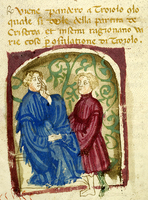 viene pandero a Troiolo olo
quale si dole della partita de
Criseida. et insemi ragionano va
rie cose
di Troiolo.